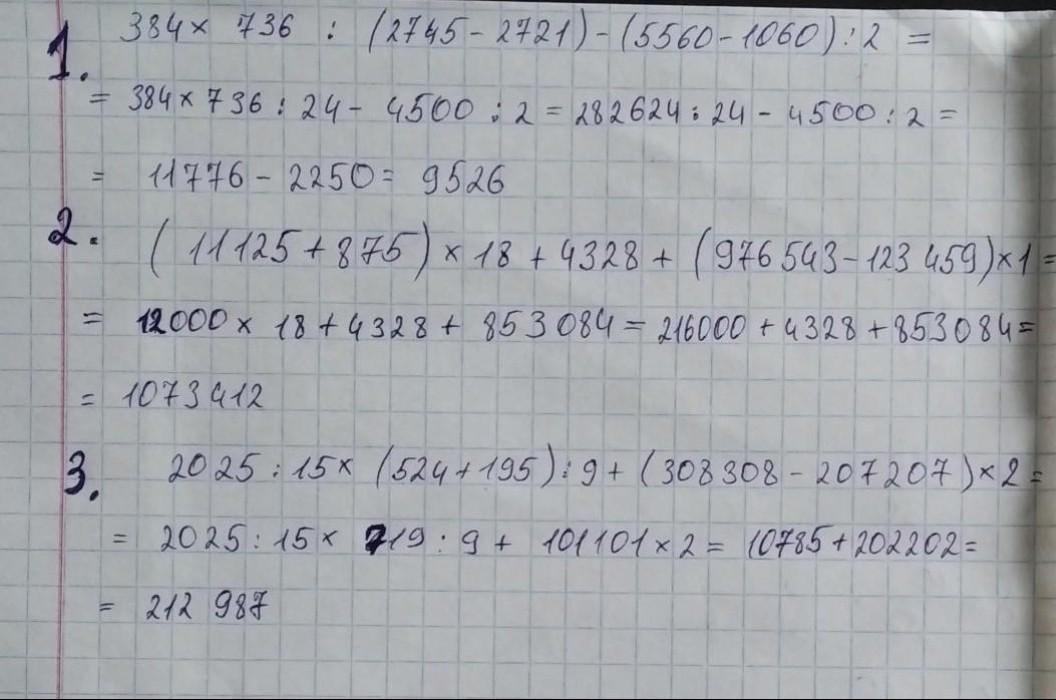 1. 384 × 736 : (2745 - 2721) - (5560 - 1060) : 2 =
= 384 × 736 : 24 - 4500 : 2 = 282624 : 24 - 4500 : 2 =
= 11776 - 2250 = 9526
2. (11125 + 875) × 18 + 4328 + (976543 - 123459) × 1 =
= 12000 × 18 + 4328 + 853084 = 216000 + 4328 + 853084 =
= 1073412
3. 2025 : 15 × (524 + 195) : 9 + (308308 - 207207) × 2 =
= 2025 : 15 × 719 : 9 + 101101 × 2 = 10785 + 202202 =
= 212 987